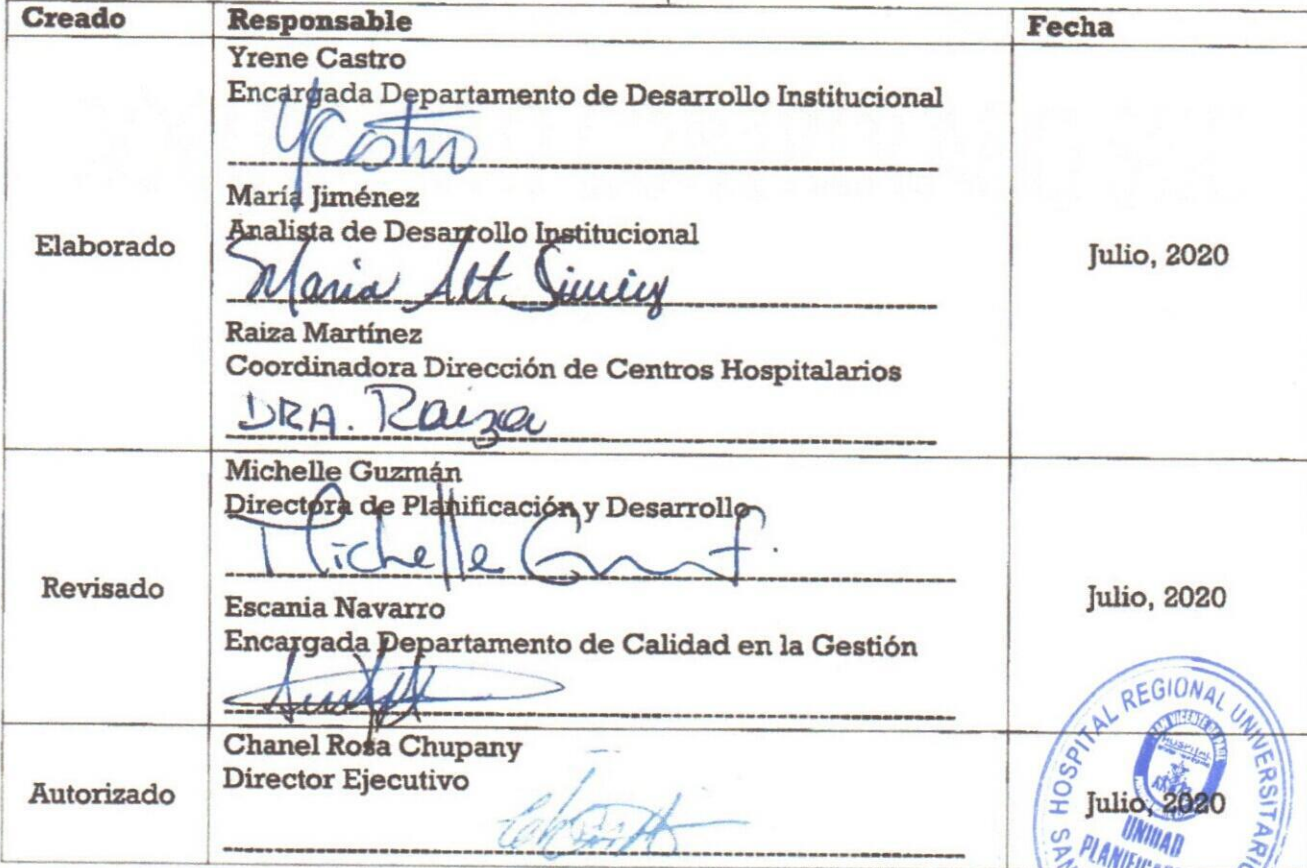 Creado Responsable Fecha
Yrene Castro
Encargada Departamento de Desarrollo Institucional
YCastro
María Jiménez
Analista de Desarrollo Institucional
Maria Alt.
Raiza Martínez
Coordinadora Dirección de Centros Hospitalarios
DRA. Raiza
Elaborado
Julio, 2020
Michelle Guzmán
Directora de Planificación y Desarrollo
Michelle
Escania Navarro
Encargada Departamento de Calidad en la Gestión
Revisado
Julio, 2020
Chanel Rosa Chupany
Director Ejecutivo
Autorizado
Julio, 2020
HOSPITAL REGIONAL
HOSPITAL
UNIDAD